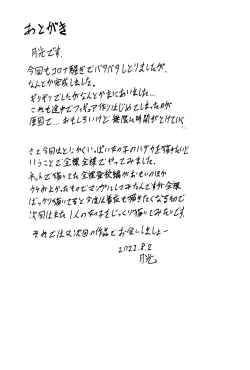 あとがき
月光です。
今回もコロナ騒ぎでバタバタしとりましたが、
なんとか完成しました。
ギリギリでしたがなんとかまにあいました…
これも途中でフィギュア作りはじめてしまったのが
原因で…おもしろいけど無限に時間がとけていく
さて今回はとにかくいっぱい女の子のハダカを描きたいと
いうことで全裸全裸でやってみました。
ネットで描いてた全裸登校編がおもいのほか
ウケがよかったのでマンガにしてみたんですが全裸
ばっかり描いてると今度は着衣も描きたくなるもので
次回はまた1人の女の子をじっくり描いてみたいです。
それではまた次回の作品でお会いしましょー
2022.8.2
月光